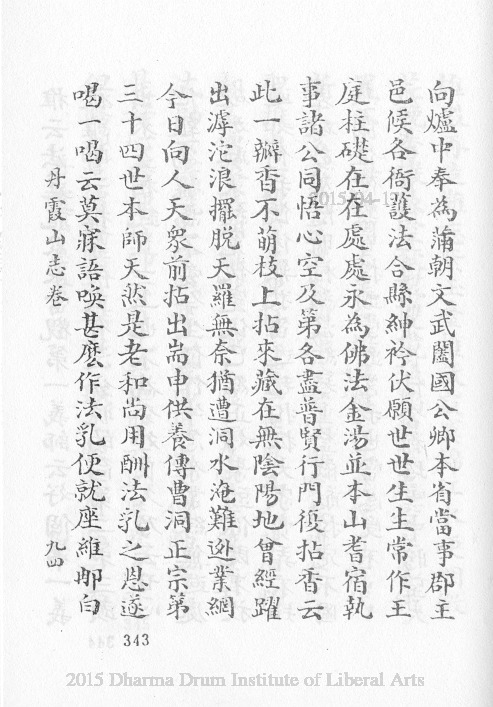 向爐中奉為蒲朝文武闔國公卿本省當事郡主
邑侯各衙護法合縣紳衿伏願世世生生常作王
庭柱礎在在處處永為佛法金湯並本山耆宿執
事諸公同悟心空及第各盡普賢行門復拈香云
此一瓣香不萌枝上拈來藏在無陰陽地曾經躍
出滹沱浪擺脫天羅無奈猶遭洞水淹難迯業網
今日向人天眾前拈出耑申供養傳曹洞正宗第
三十四世本師天然是老和尚用酬法乳之恩遂
喝一喝云莫寐語喚甚麼作法乳便就座維那白
丹霞山志卷
九四
343
2015 Dharma Drum Institute of Liberal Arts